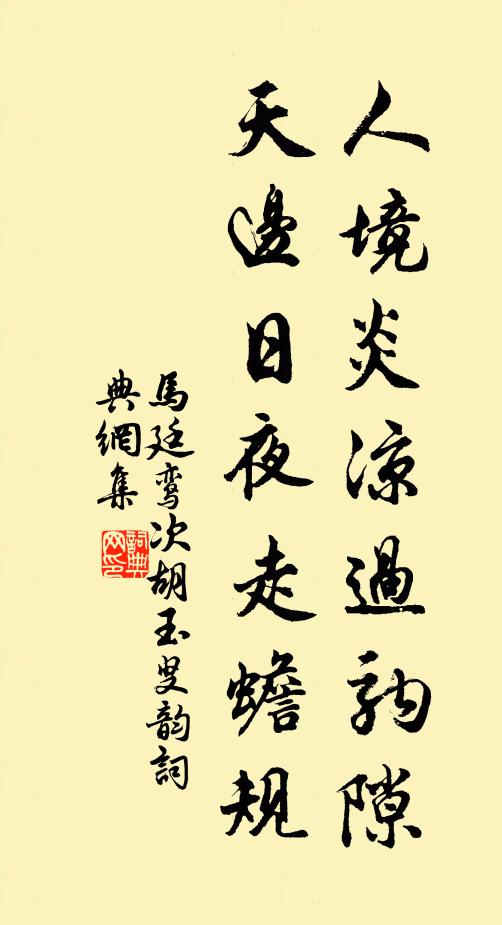 人境炎涼過駒隙
天邊日夜走蟾規
馬廷鸾次胡玉叟韵詞
典網集
詞典
网印